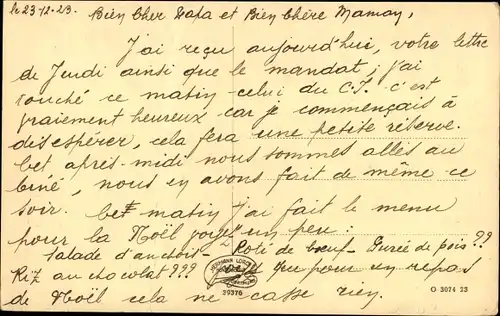 le 23-12-23. Bien Cher Papa et Bien Chère Maman,
J'ai reçu aujourd'hui, votre lettre
de Jeudi ainsi que le mandat; j'ai
touché ce matin celui du C.F. c'est
vraiement heureux car je commençais à
désespérer, cela fera une petite réserve.
Cet après-midi nous sommes allés au
ciné, nous en avons fait de même ce
soir. Cet matin j'ai fait le menu
pour la Noël voyez un peu:
Salade d'anchois - Roti de bœuf - Purée de pois??
Riz au chocolat??? que pour un repas
de Noël cela ne casse rien.
39376
O 3074 23